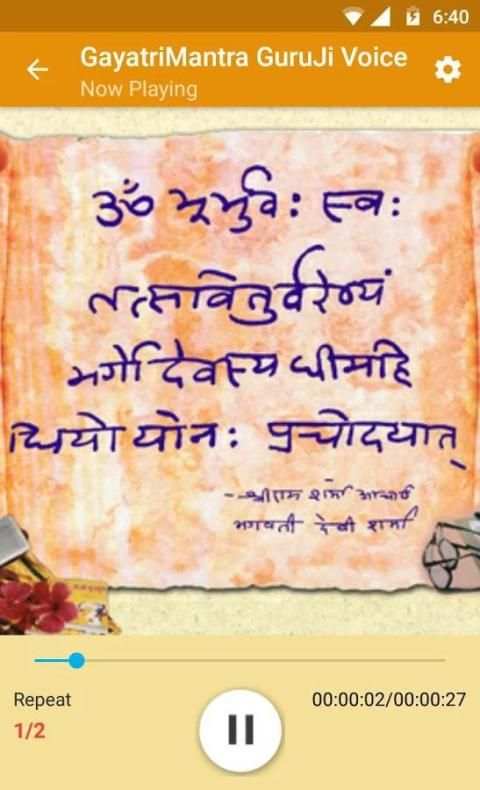 6:40
GayatriMantra GuruJi Voice
Now Playing
ॐ भूर्भुवः स्वः
तत्सवितुर्वरेण्यं
भर्गो देवस्य धीमहि
धियो यो नः प्रचोदयात्
- श्रीराम शर्मा आचार्य
भगवती देवी शर्मा
Repeat
00:00:02/00:00:27
1/2